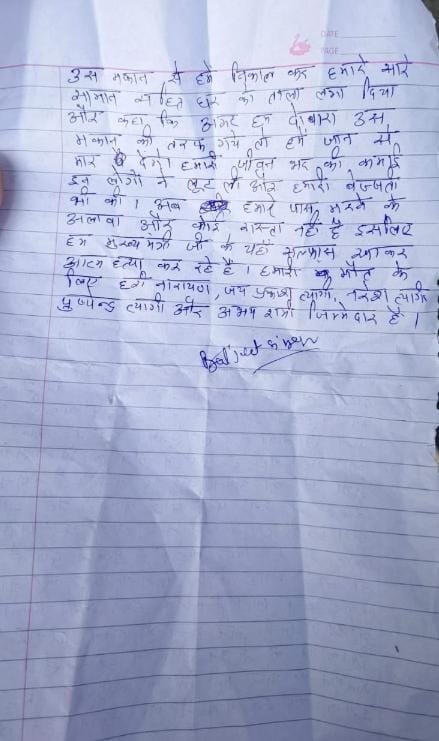 DATE
PAGE
उस मकान से हमें निकाल कर हमारे सारे
सामान सहित घर का ताला लगा दिया
और कहा कि अगर हम दोबारा उस
मकान की तरफ गये तो हमें जान से
मार देगें। हमारी जीवन भर की कमाई
इन लोगों ने लूट ली और हमारी बेज्जती
भी की। अब हमारे पास मरने के
अलावा और कोई रास्ता नहीं है इसलिए
हम मुख्यमंत्री जी के यहाँ सल्फास खाकर
आत्म हत्या कर रहे हैं। हमारी मौत के
लिए हरी नारायण, जय प्रकाश त्यागी, नरेश त्यागी
पुष्पेन्द्र त्यागी और अभय शर्मा जिम्मेदार है।
Baljeet Singh